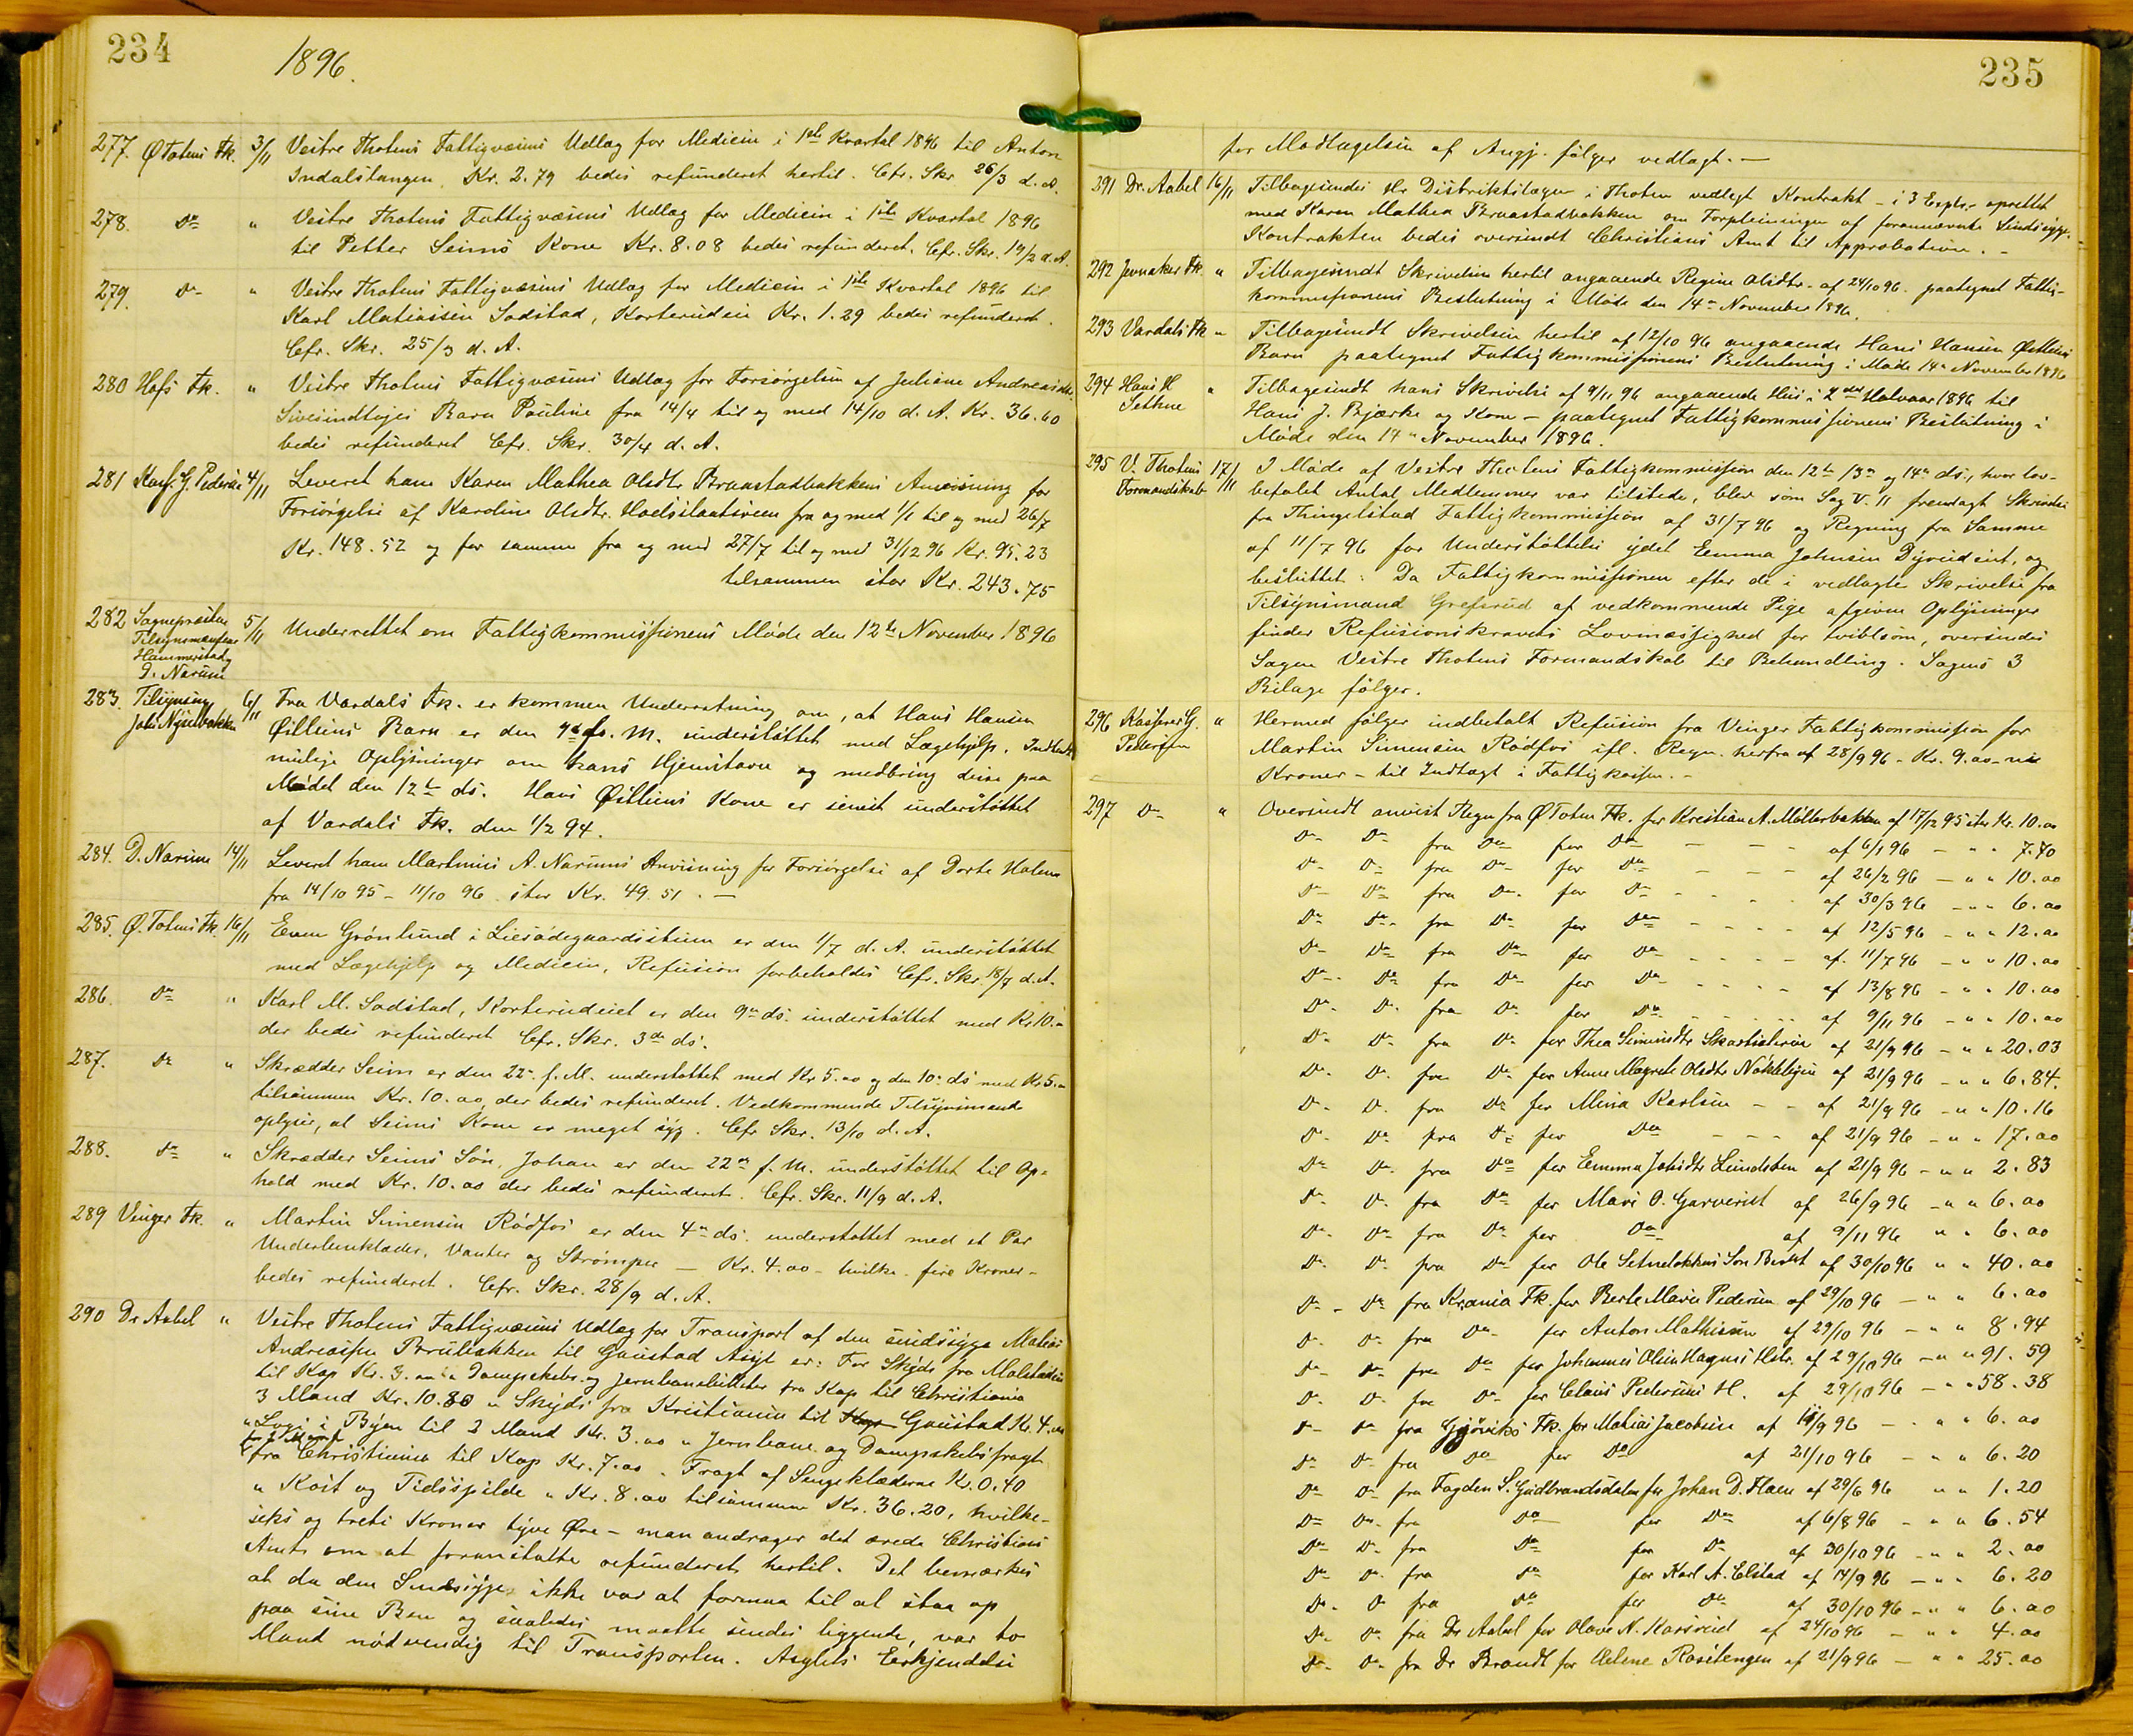 234
1896.
277. Ø Totens Fk. 3/11 Vestre Thotens Fattigvæsens Udlæg for Medicin i 1ste Kvartal 1896 til Anton
Indalstangen. Kr. 2.79 bedes refunderet hertil. Cfr. Skr. 26/3 d. A.
278. Do " Vestre Thotens Fattigvæsens Udlæg for Medicin i 1ste Kvartal 1896
til Petter Seims Kone Kr. 8.08 bedes refunderet. Cfr. Skr. 19/2 d. A.
279. Do " Vestre Thotens Fattigvæsens Udlæg for Medicin i 1ste Kvartal 1896 til
Karl Matiassen Sodstad, Korterudeie Kr. 1.29 bedes refunderet.
Cfr. Skr. 25/3 d. A.
280 Hofs Fk. " Vestre Thotens Fattigvæsens Udlæg for Forsørgelsen af Juliane Andreasdtr.
Barn Pauline fra 14/4 til og med 14/10 d. A. Kr. 36.60
bedes refunderet Cfr. Skr. 30/4 d. A.
281 Kasf. G. Pedersen 4/11 Leveret ham Karen Mathea Olsdtr Braastadbakkens Anvisning for
Forsørgelse af Karoline Olsdtr. fra og med 1/1 til og med 26/7
Kr. 148.52 og for samme fra og med 27/7 til og med 31/12 96 Kr. 95.23
tilsammen stor Kr. 243.75
282 Sognepræsten 5/11 Underrettet om Fattigkommissionens Møde den 12te November 1896
Tilsynsmændene
Hammerstad og
D. Narum
283. Tilsynsmg 6/11 Fra Vardals Fk. er kommen Underretning om, at Hans Hansen
Johs Nyselbakken
Østliens Barn er den 4de f. M. understøttet med Lægehjelp. Indhent
mulige Oplysninger om hans Hjemstavn og medbring disse paa
Mødet den 12te ds. Hans Østliens Kone er senest understøttet
af Vardals Fk. den 1/2 94.
284. D. Narum 14/11 Leveret ham Martinus A. Narums Anvisning for Forsørgelse af Dorte Holen
fra 14/10 95 - 11/10 96 stor Kr. 49.51. —
285. Ø. Totens Fk. 16/11 Even Grønlund i er den 1/7 d. A. understøttet
med Lægehjelp og Medicin, Refusion forbeholdes Cfr. Skr. 18/7 d. A.
286. Do " Karl M. Sodstad, Korterudeiet er den 9de ds. understøttet med Kr. 10.00
der bedes refunderet Cfr. Skr. 3de ds.
287. Do " Skrædder Seim er den 22de f. M. understøttet med Kr 5.00 og den 10de ds med Kr 5.00
tilsammen Kr. 10.00, der bedes refunderet. Vedkommende Tilsynsmand
oplyser, at Seims Kone er meget syg. Cfr Skr. 13/10 d. A.
288. Do " Skrædder Seims Søn, Johan er den 22de f. M. understøttet til Op-
hold med Kr. 10.00 der bedes refunderet. Cfr. Skr. 11/9 d. A.
289 Vinger Fk. " Martin Simensen Rødfos er den 4de ds. understøttet med et Par
Underbenklæder, Vanter og Strømper — Kr. 4.00 - hvilke fire Kroner -
bedes refunderet. Cfr. Skr. 28/9 d. A.
290 Dr Aabel " Vestre Thotens Fattigvæsens Udlæg for Transport af den sindssyge Matias
Andreassen Brulibakken til Gaustad Asyl er: For Skyds fra
til Kap Kr. 3.00 " Dampskibs- og Jernbanebilletter fra Kap til Christiania
3 Mand Kr. 10.80 " Skyds fra Kristiania til Kap Gaustad Kr. 4.00
" Logi i Byen til 3 Mand Kr. 3.00 " Jernbane og Dampskibsfragt
for 2 Mand
fra Christiania til Kap Kr. 7.00. Fragt af Sengeklæderne Kr. 0.40
" Kost og Tidsspilde " Kr. 8.00 tilsammen Kr. 36.20, hvilke -
seks og treti Kroner tyve Øre - man andrager det ærede Christians
Amt om at foranstalte refunderet hertil. Det bemærkes
at da den Sindssyge ikke var at formaa til at staa op
paa sine Ben og saaledes maatte sendes liggende, var to
Mand nødvendig til Transporten. Asylets Erkjendelse
235
for Modtagelsen af Angj. følger vedlagt. —
291 Dr. Aabel 16/11 Tilbagesendes Hr Distriktslægen i Thoten vedlagt Kontrakt - i 3 Explr. oprettet
med Karen Mathea Braastadbakken om Forpleiningen af forannævnte Sindssyge.
Kontrakten bedes oversendt Christians Amt til Approbation. -
292 Jevnaker Fk. " Tilbagesendt Skrivelse hertil angaaende Regine Olsdtr. af 24/10 96. paategnet Fattig-
kommissionens Beslutning i Møde den 14de November 1896.
293 Vardals Fk " Tilbagesendt Skrivelsen hertil af 12/10 96 angaaende Hans Hansen Østliens
Barn paategnet Fattigkommissionens Beslutning i Møde 14de November 1896
294 Hans H " Tilbagesendt hans Skrivelse af 9/11 96 angaaende Hus i 2det Halvaar 1896 til
Sethne
Hans J. Bjærke og Kone - paategnet Fattigkommissionens Beslutning i
Møde den 14de November 1896.
295 V. Thotens 17/11 I Møde af Vestre Thotens Fattigkommission den 12te 13de og 14de ds., hvor lov-
Formandskab
befalet Antal Medlemmer var tilstede, blev som Sag V. 11 fremlagt Skrivelse
fra Thingelstad Fattigkommission af 31/7 96 og Regning fra Samme
af 11/7 96 for Understøttelse ydet Emma Johnsen og
besluttet: Da Fattigkommissionen efter de i vedlagte Skrivelse fra
Tilsynsmand Grefsrud af vedkommende Pige afgivne Oplysninger
finder Refusionskravets Lovmæssighed for tvivlsom, oversendes
Sagen Vestre Thotens Formandskab til Behandling. Sagens 3
Bilage følger.
296 Kasserer G. " Hermed følger indbetalt Refusion fra Vinger Fattigkommission for
Pedersen
Martin Simensen Rødfos ifl. Regn. herfra af 28/9 96 - Kr. 9.00 - ni
Kroner - til Indtægt i Fattigkassen. -
297 Do " Oversendt anvist Regn fra Ø Toten Fk. for Kristian A. Møllerbakken af 17/12 95 stor Kr. 10.00
Do Do fra Do for Do - - - af 6/1 96 - " " 7.70
Do Do fra Do for Do - - - af 26/2 96 - " " 10.00
Do Do fra Do for Do - - - af 30/3 96 - " " 6.00
Do Do fra Do for Do - - - af 12/5 96 - " " 12.00
Do Do fra Do for Do - - - af 11/7 96 - " " 10.00
Do Do fra Do for Do - - - af 13/8 96 - " " 10.00
Do Do fra Do for Do - - - af 9/11 96 - " " 10.00
Do Do fra Do for Thea Simensdtr af 21/9 96 - " " 20.03
Do Do fra Do for Anne Magrete Olsdtr Nøkleby af 21/9 96 - " " 6.84.
Do Do fra Do for Mina Karlsen - - af 21/9 96 - " " 10.16
Do Do fra Do for Do - - - af 21/9 96 - " " 17.00
Do Do fra Do for Emma Johsdtr Lundsten af 21/9 96 - " " 2.83
Do Do fra Do for Mari O. Garveriet af 26/9 96 - " " 6.00
Do Do fra Do for Do af 9/11 96 " " 6.00
Do Do fra Do for Ole Setnelokkens Søn Bernt af 30/10 96 " " 40.00
Do Do fra Krania Fk. for Berte Marie Pedersen af 29/10 96 - " " 6.00
Do Do fra Do for Anton Mathisen af 29/10 96 - " " 8.94
Do Do fra Do for Johannes Olsen Hagens Hstr. af 29/10 96 - " " 91.59
Do Do fra Do for Claus Pedersens H. af 29/10 96 - " " 58.38
Do Do fra Gjøviks Fk. for Matias Jacobsen af 18/9 96 - " " 6.00
Do Do fra Do for Do af 21/10 96 - " " 6.20
Do Do fra Fogden S. Gudbrandsdalen for Johan D. Flaen af 29/6 96 " " 1.20
Do Do fra Do for Do af 6/8 96 - " " 6.54
Do Do fra Do for Do af 30/10 96 - " " 2.00
Do Do fra Do for Karl A. Elstad af 14/9 96 - " " 6.20
Do Do fra Do for Do af 30/10 96 - " " 6.00
Do Do fra Dr Aabel for Olave N. Karsrud af 24/10 96 - " " 4.00
Do Do fra Dr Brandt for Helene Rositengen af 21/9 96 - " " 25.00